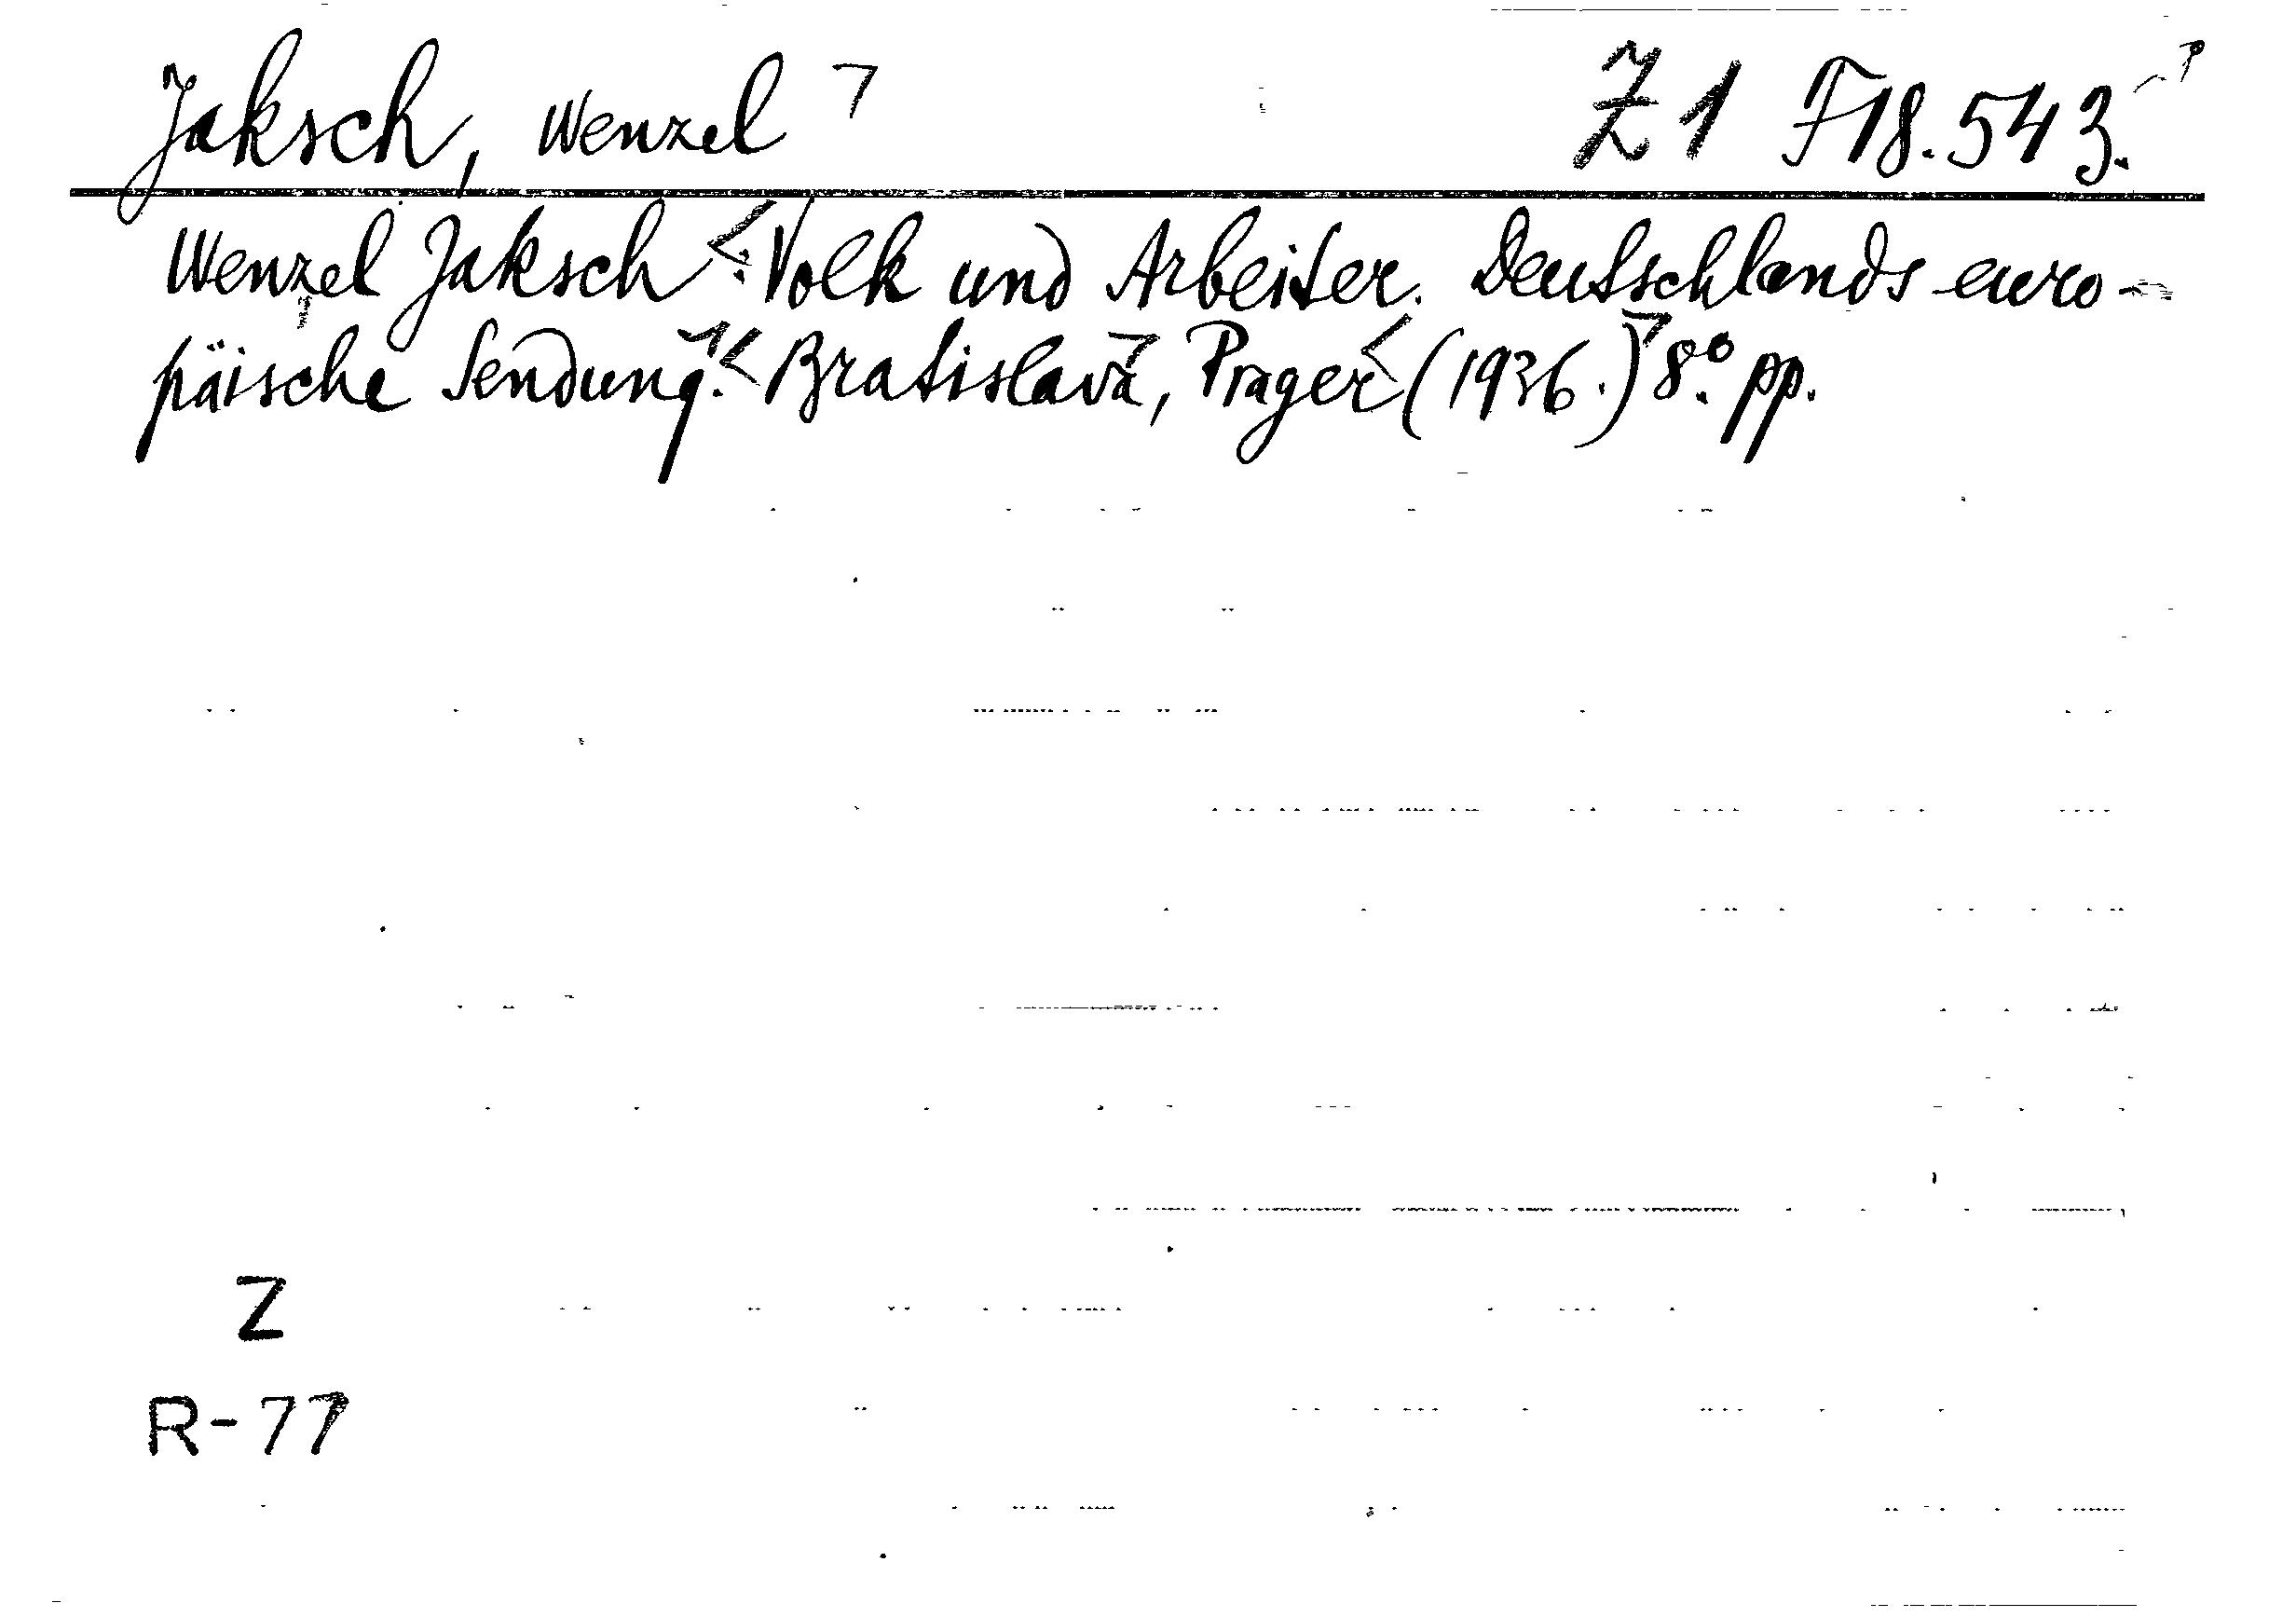 Jaksch, Wenzel Z1 F18.543.
Wenzel Jaksch: Volk und Arbeiter. Deutschlands euro-
päische Sendung. Bratislava, Prager (1936.) 8° pp.
Z
R-77